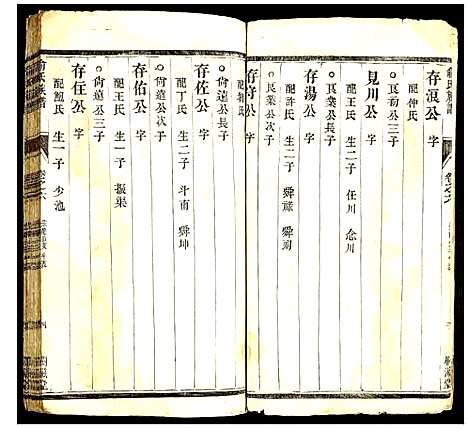 存浪公 字
配仲氏
良翕公三子
見川公 字
配王氏 生二子 任川 念川
良業公長子
存湯公 字
配許氏 生二子 舜
良業公次子
存 公 字
配 氏
尙遠公長子
存佐公 字
配丁氏 生二子 斗南 舜坤
尙遠公次子
存佑公 字
配王氏 生一子 振渠
尙遠公三子
存任公 字
配 氏 生一子 少池
氏族譜
卷之六